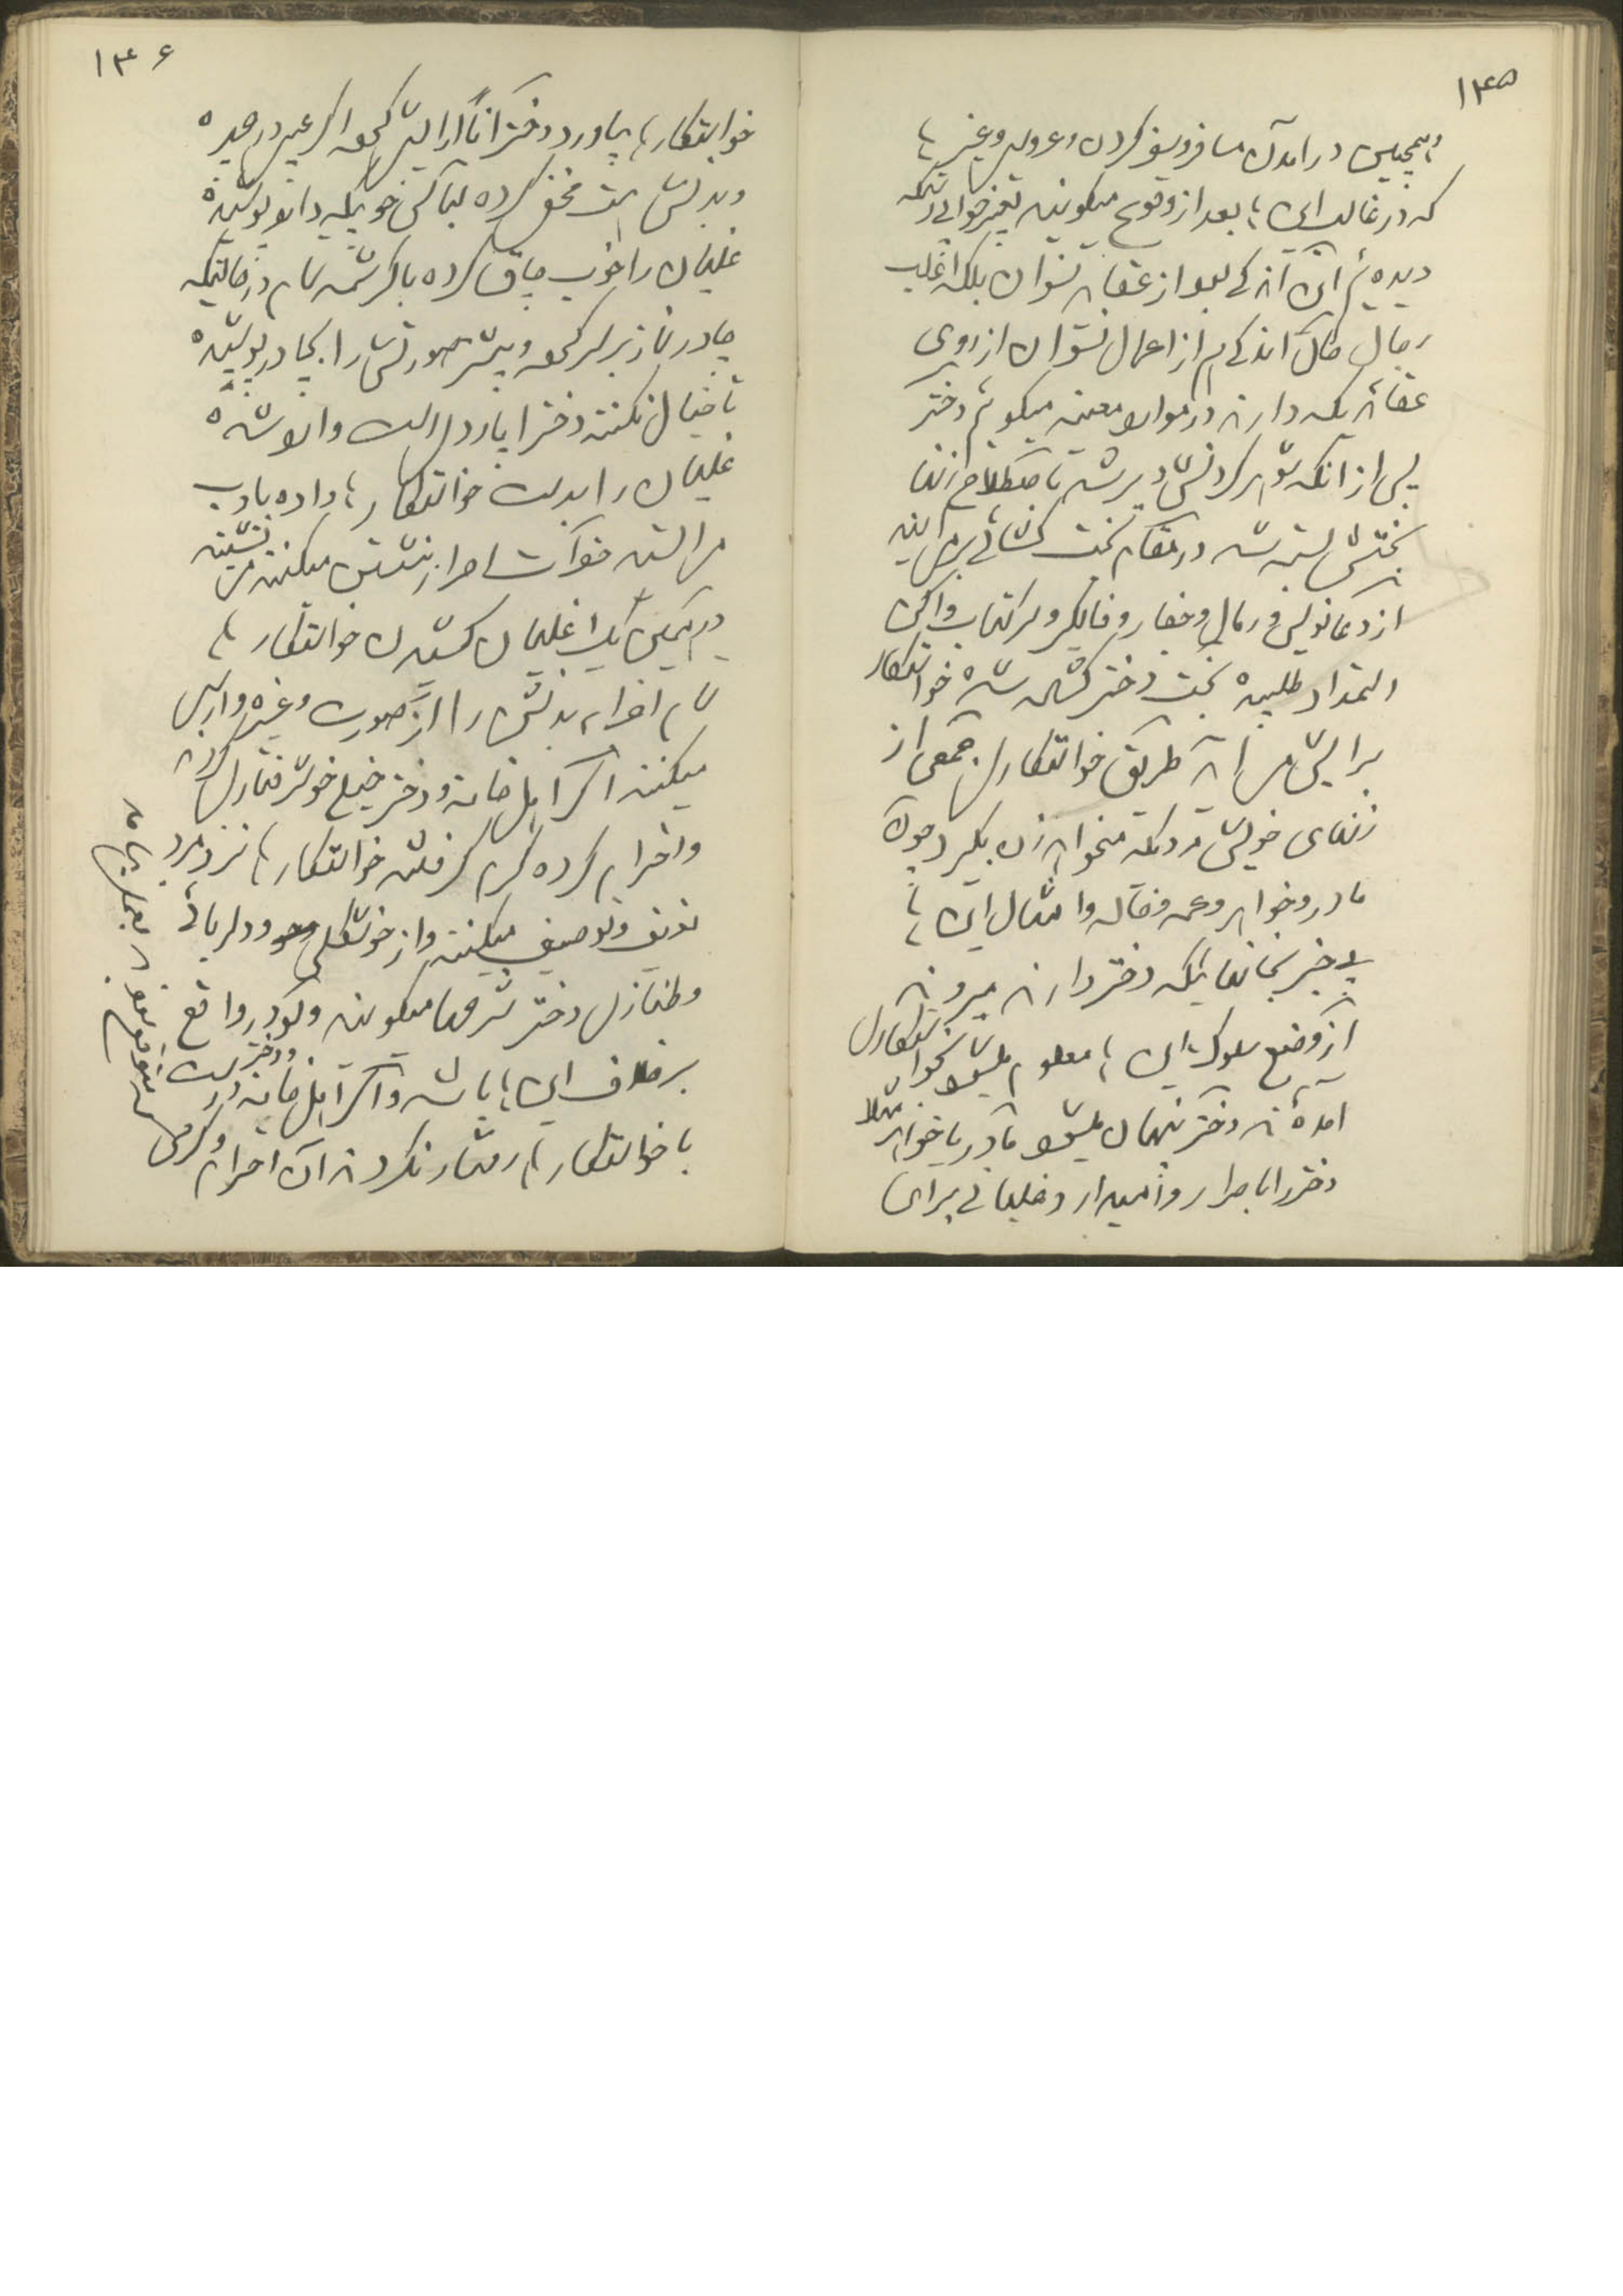 ۱۴۵
و همچنین در آمدن مسافر و سفر کردن و عروسی و غیرها
که در غالب این‌ها بعد از وقوع میگویند تعبیر خوابی بود که
دیده‌ایم این اندکی بود از عقاید نسوان بلکه اغلب
رجال حال اندکی هم از اعمال نسوان از روی
عقائدیکه دارند در موارد معینه میگویم دختر
پس از آنکه شوهر کردنش دیر شد باصطلاح زنها
بختش بسته شد در مقام بخت گشائی برمی‌آیند
از دعانویس و رمال و جفار و فالگیر و سر کتاب واکن
استمداد طلبیده بخت دختر گشاده شده خواستگار
برایش می‌آید طریق خواستگاری جمعی از
زنهای خویش مردیکه میخواهد زن بگیرد چون
مادر و خواهر و عمه و خاله و امثال این‌ها
بی‌خبر بخانهائیکه دختر دارند میروند
از وضع سلوک این‌ها معلوم میشود بخواستگاری
آمده‌اند دختر پنهان میشود مادر یا خواهر مثلا
دختر را باصرار وامیدارد غلیانی برای
۱۴۶
خواستگارها بیاورد دختر آناً آرایش کرده اگر عیب در چهره
و بدنش هست مخفی کرده لباس خوبیکه دارد پوشیده
غلیان را خوب چاق کرده با کرشمه تمام در حالتیکه
چادر نماز بر سر کرده و بیشتر صورتش را بچادر پوشیده
تا خیال نکنند دختر ایاز دل است وارد شده
غلیان را بدست خواستگارها داده با ادب
می‌ایستد خواهش و اصرار بنشستن میکنند می‌نشیند
در همین یک غلیان کشیدن خواستگارها
تمام اجزاء بدنش را از صورت و غیره وارسی
میکنند اگر اهل خانه و دختر خیلی خوشرفتاری کرده
و احترام کرده گرم گرفتند خواستگارها نزد مرد
تعریف و توصیف میکنند و از خوشگلی و دلربائی
و طنازی دختر شرحها میگویند و لو در واقع
برخلاف این‌ها باشد و اگر اهل خانه و دختر درست
با خواستگارها رفتار نکردند آن احترام و گرمی